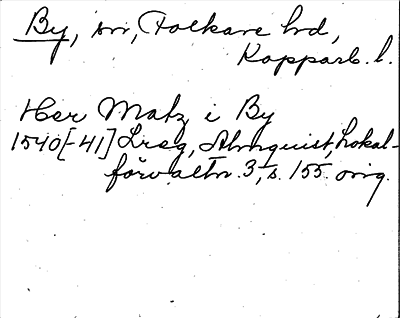 By, sn, Folkare hrd,
Kopparb. l.
Her Matz i By
1540[-41] Lreg, Almquist, Lokal-
förvaltn. 3, s. 155. orig.